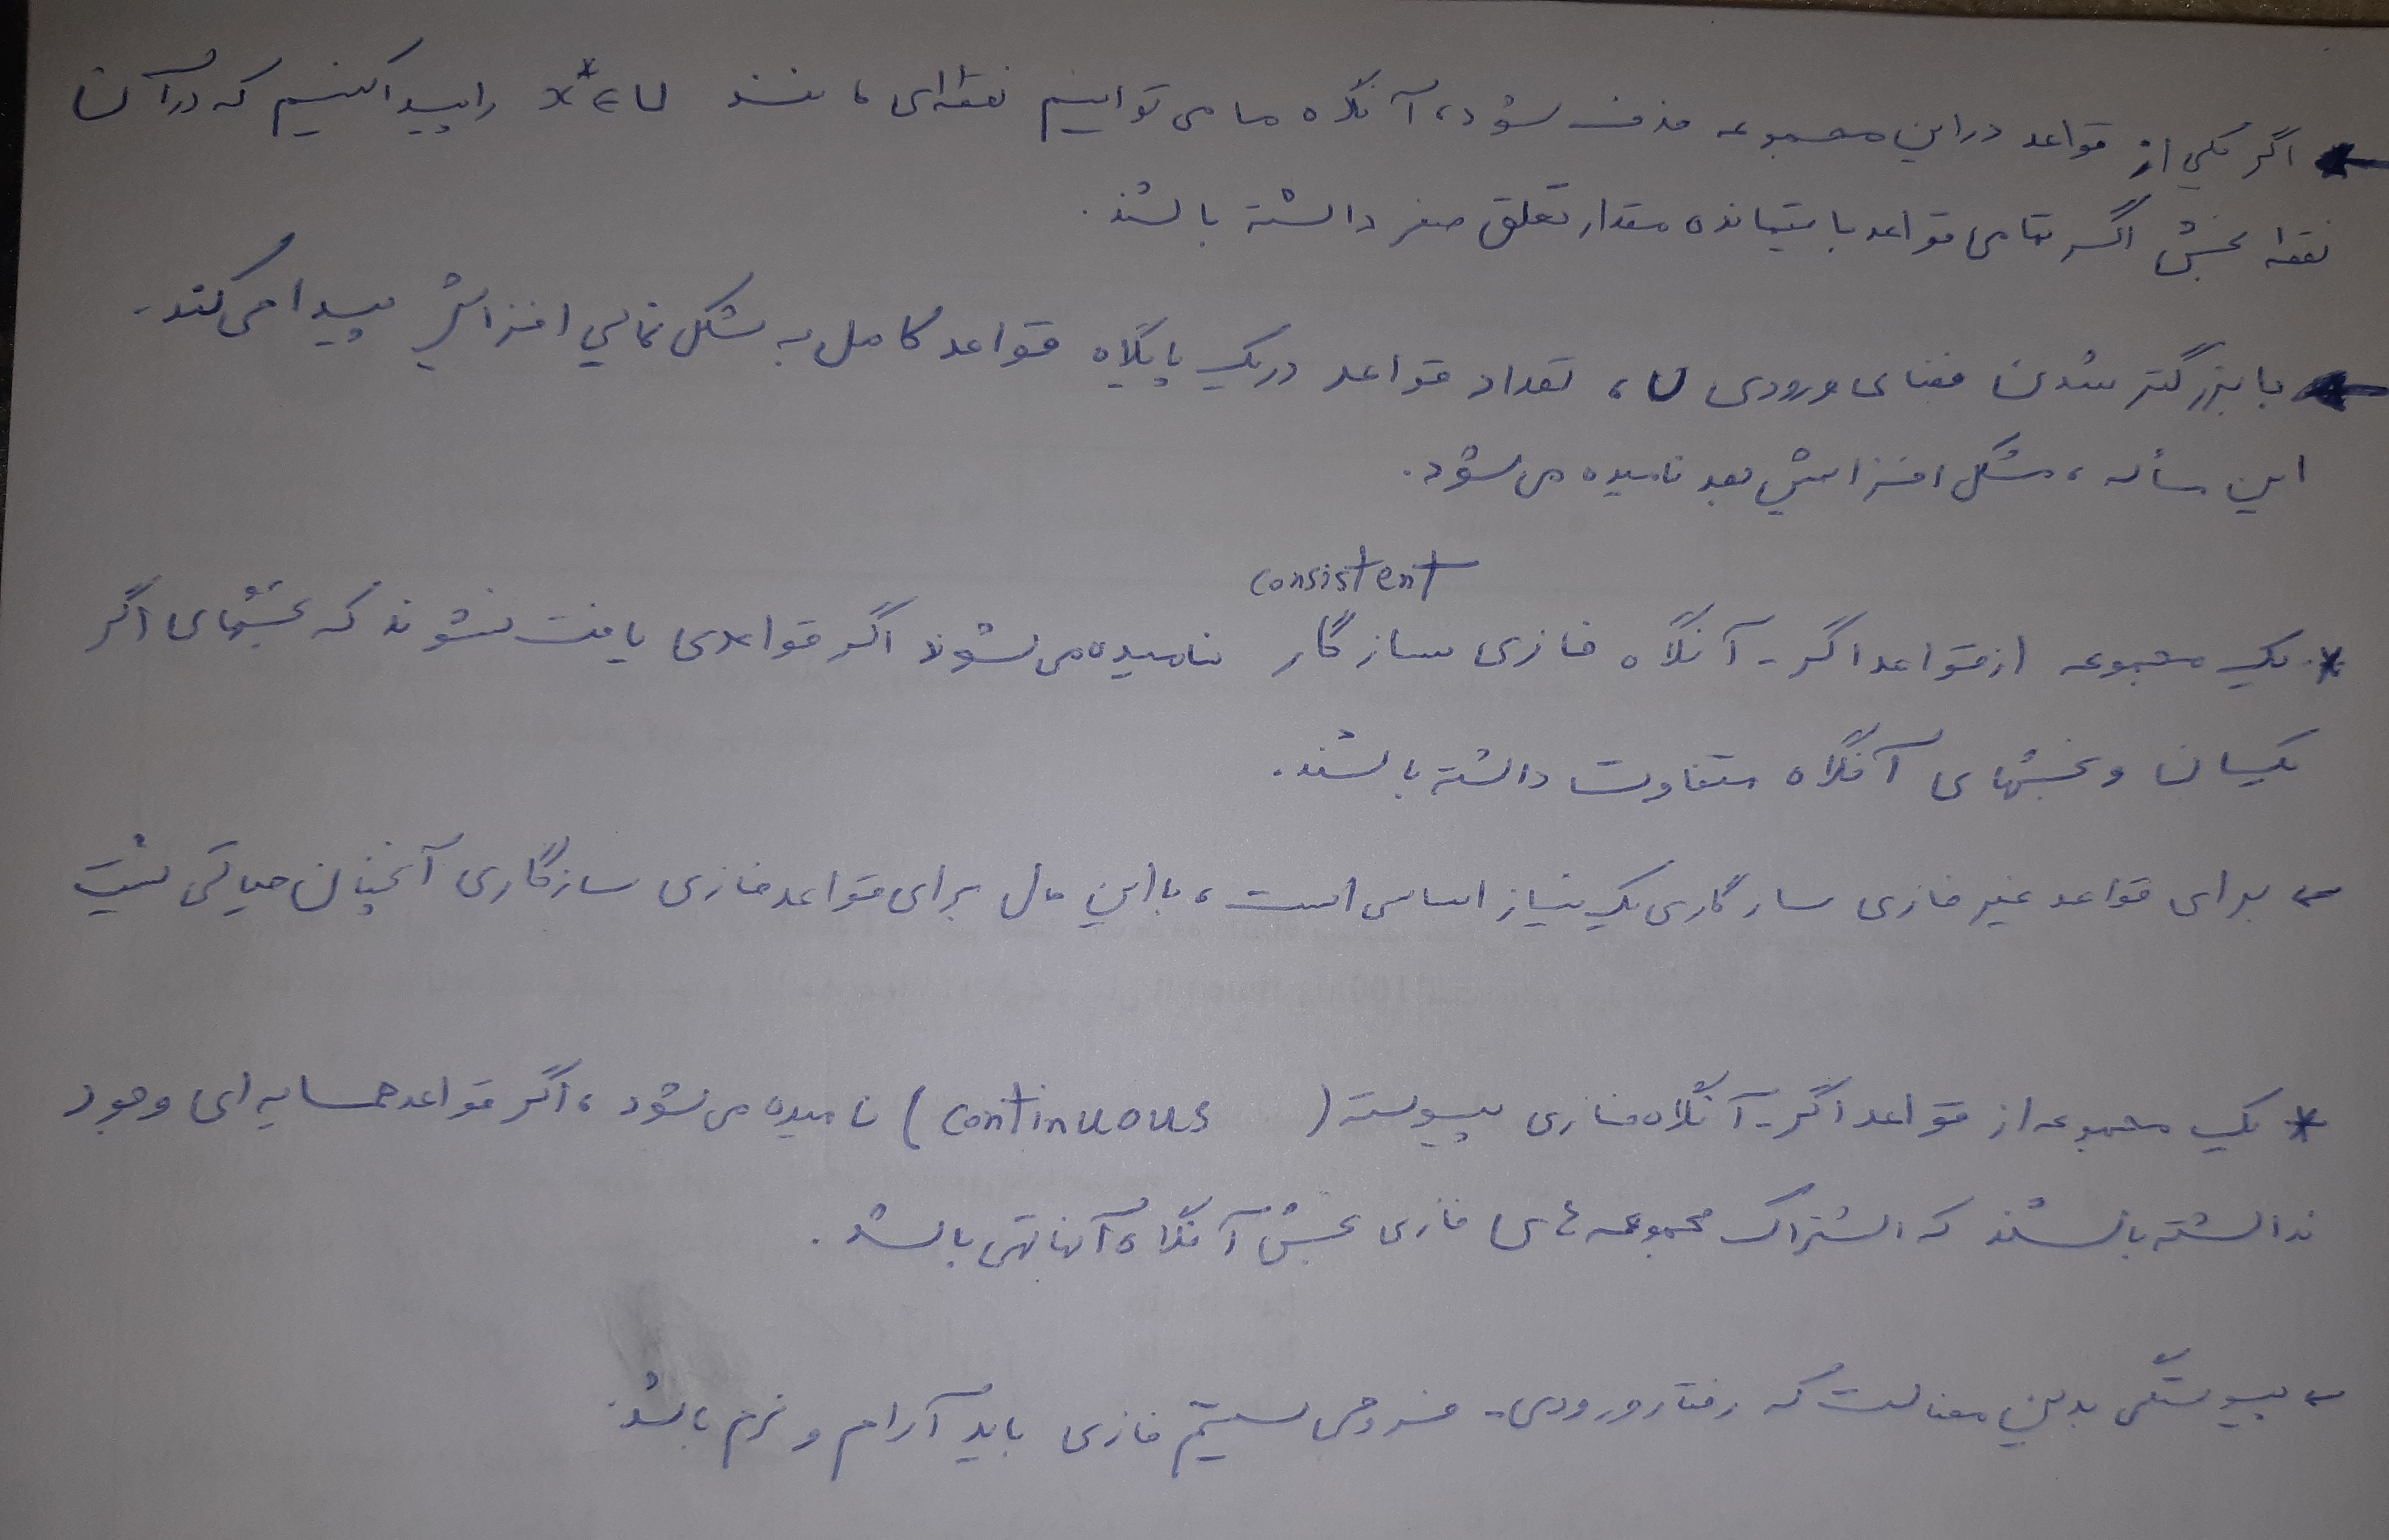 ← اگر یکی از قواعد در این مجموعه حذف شود، آنگاه ما می توانیم نقطه‌ای مانند x* ∈ U را پیدا کنیم که در آن
نقطه بخش اگر تمامی قواعد باقیمانده مقدار تعلق صفر داشته باشند.
← با بزرگتر شدن فضای ورودی U، تعداد قواعد در یک پایگاه قواعد کامل به شکل نمایی افزایش پیدا می کند.
این مسأله، مشکل افزایش بعد نامیده می شود.
consistent
* یک مجموعه از قواعد اگر-آنگاه فازی سازگار نامیده می شود اگر قواعدی یافت نشوند که بخشهای اگر
یکسان و بخشهای آنگاه متفاوت داشته باشند.
← برای قواعد غیر فازی سازگاری یک نیاز اساسی است، با این حال برای قواعد فازی سازگاری آنچنان حیاتی نیست
* یک مجموعه از قواعد اگر-آنگاه فازی پیوسته (continuous) نامیده می شود، اگر قواعد همسایه ای وجود
نداشته باشند که اشتراک مجموعه های فازی بخش آنگاه آنها تهی باشد.
← پیوستگی بدین معناست که رفتار ورودی-خروجی سیستم فازی باید آرام و نرم باشد.